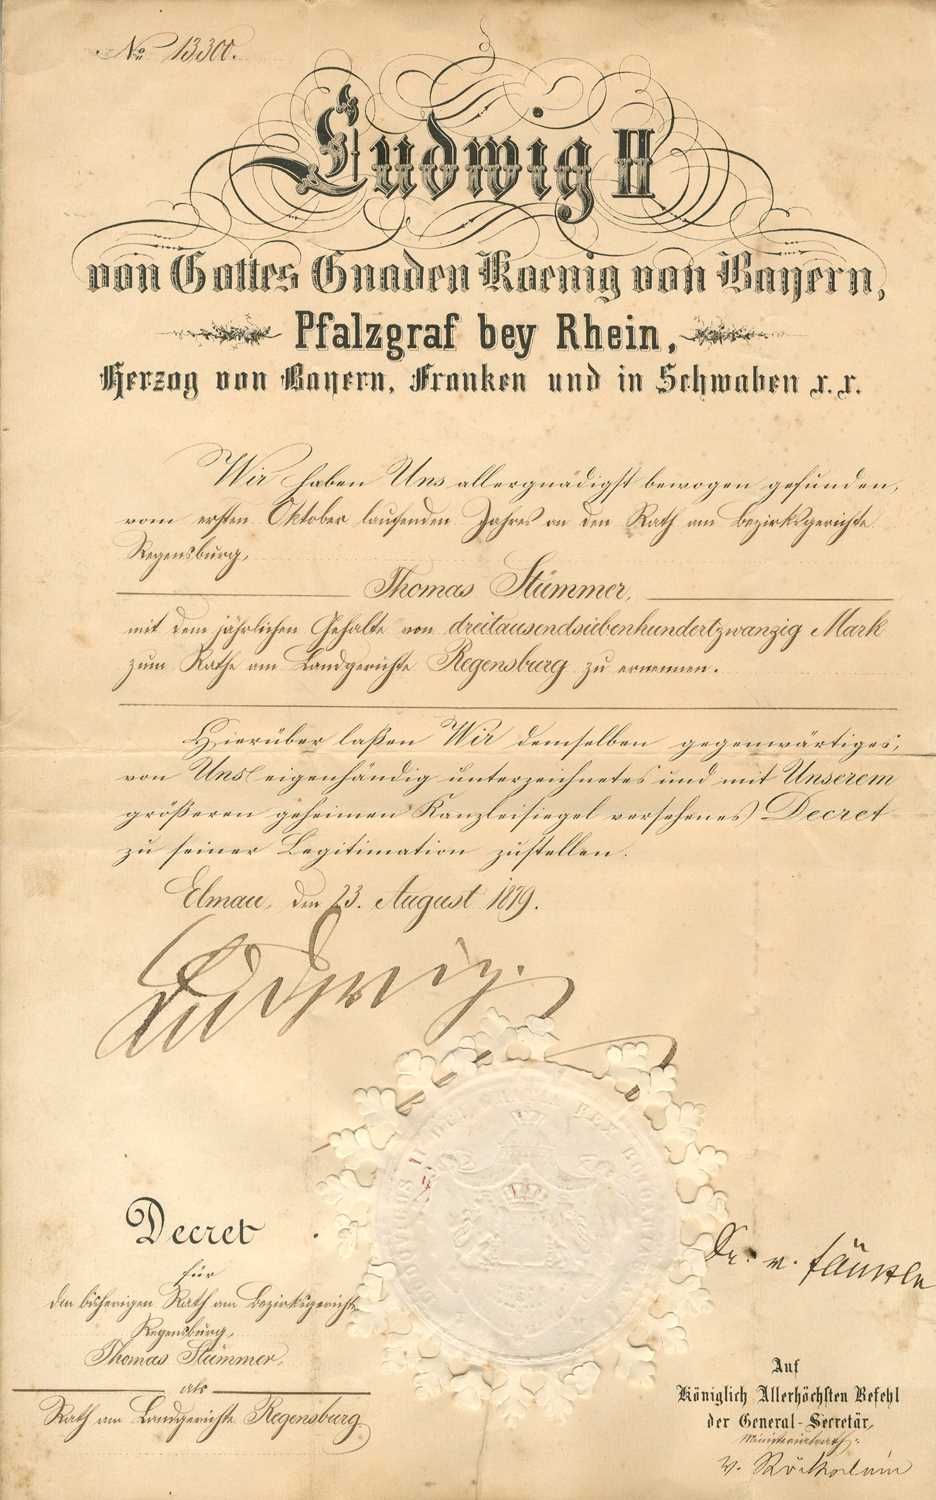 No. 13300.
Ludwig II
von Gottes Gnaden Koenig von Bayern,
Pfalzgraf bey Rhein,
Herzog von Bayern, Franken und in Schwaben x. x.
Wir haben Uns allergnädigst bewogen gefunden,
vom ersten Oktober laufenden Jahres an den Rath am Bezirksgerichte
Regensburg,
Thomas Stümmer,
mit dem jährlichen Gehalte von dreitausendsiebenhundertzwanzig Mark
zum Rathe am Landgerichte Regensburg zu ernennen.
Hierüber laßen Wir demselben gegenwärtiges,
von Uns eigenhändig unterzeichnetes und mit Unserem
größeren geheimen Kanzleisiegel versehenes Decret
zu seiner Legitimation zustellen.
Elmau, den 23. August 1879.
Ludwig.
Decret
für
den bisherigen Rath am Bezirksgerichte
Regensburg,
Thomas Stümmer,
als
Rath am Landgerichte Regensburg.
Dr. v. Fäustle
Auf
Königlich Allerhöchsten Befehl
der General-Secretär,
Ministerialrath:
v.